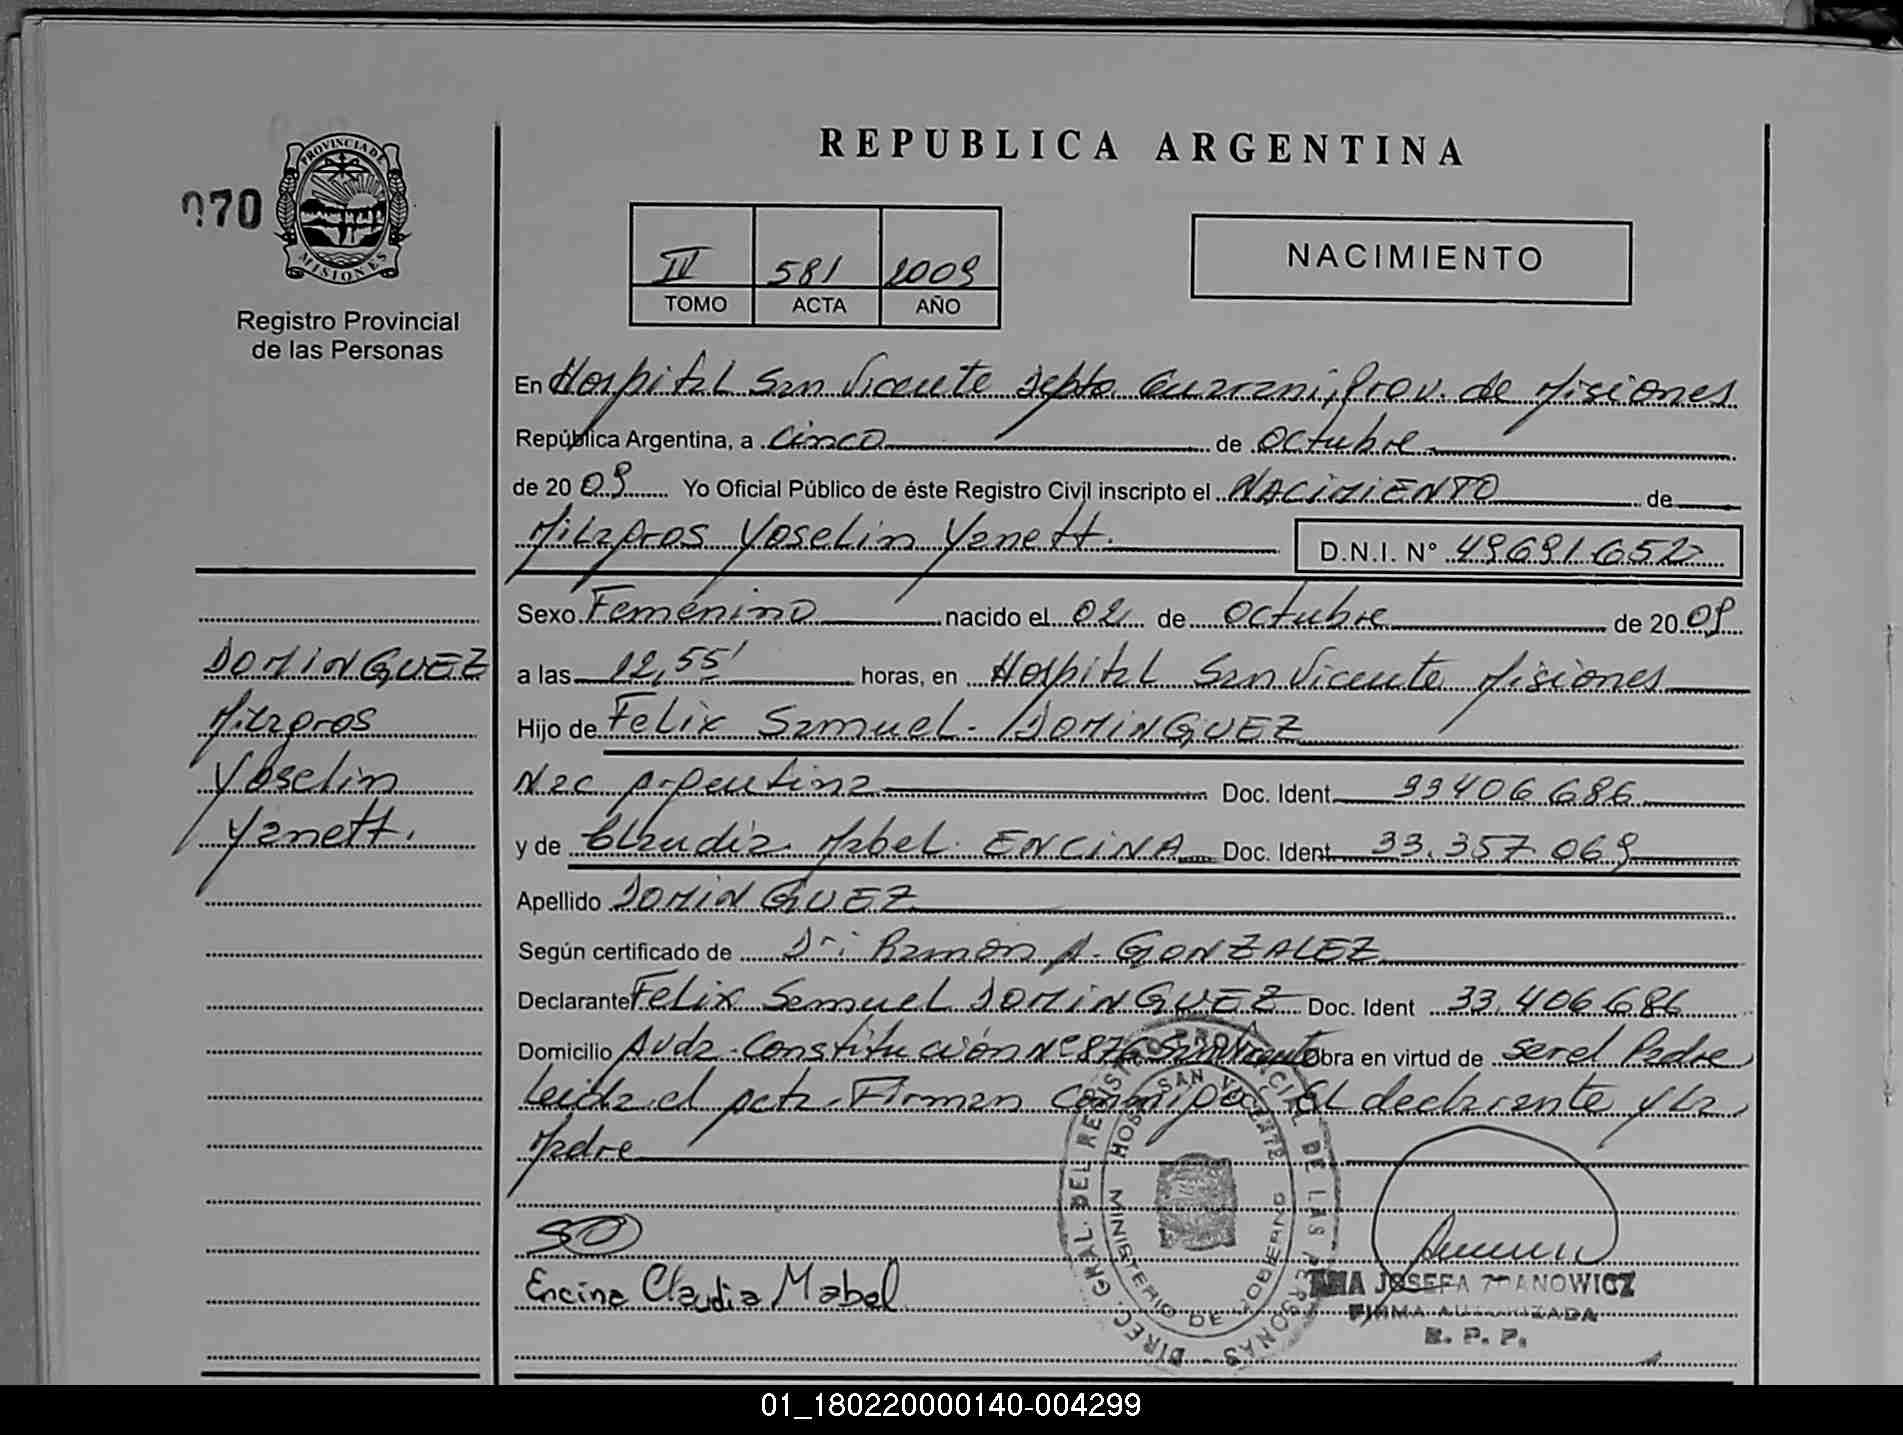 REPUBLICA ARGENTINA
070
PROVINCIA DE
MISIONES
Registro Provincial
de las Personas
IV 581 2009
TOMO ACTA AÑO
NACIMIENTO
En Hospital San Vicente Depto Guarani, Prov. de Misiones
República Argentina, a Cinco de octubre
de 2009 Yo Oficial Público de éste Registro Civil inscripto el NACIMIENTO de
Milagros Yoselin Yanett.
D.N.I. N° 49691652
Sexo Femenino nacido el 02 de octubre de 2009
a las 12,55' horas, en Hospital San Vicente Misiones
Hijo de Felix Samuel. DOMINGUEZ
Nac Argentina Doc. Ident. 33406686
y de Claudia Mabel. ENCINA Doc. Ident. 33.357.069
Apellido DOMINGUEZ
Según certificado de Dr: Ramon A. GONZALEZ
Declarante Felix Samuel DOMINGUEZ Doc. Ident 33.406.686
Domicilio Avda. Constitución N° 876 San Vicente Obra en virtud de ser el Padre
Leida el acta. Firman conmigo El declarante y La
Madre
Encina Claudia Mabel
DOMINGUEZ
Milagros
Yoselin
Yanett.
DIREC. GRAL. DEL REGISTRO PROVINCIAL DE LAS PERSONAS
HOSP. SAN VICENTE
MINISTERIO DE GOBIERNO
ANA JOSEFA
FIRMA AUTORIZADA
R. P. P.
01_180220000140-004299